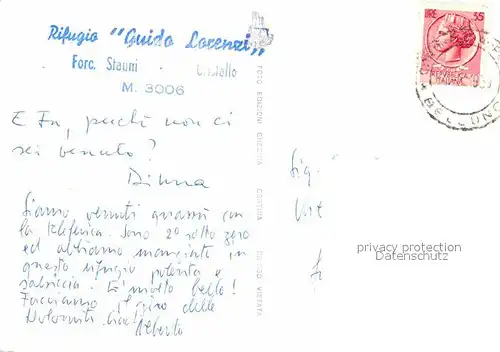 Rifugio "Guido Lorenzi"
Forc. Stauni - Cristallo
M. 3006
E Tu, perché non ci
sei venuto?
Siamo venuti quassù con
la teleferica. Sono 2° sotto zero
ed abbiamo mangiato in
questo rifugio polenta e
salsiccia. È molto bello!
Facciamo il giro delle
Dolomiti. Ciao!
Alberto
LIRE 35
REPUBBLICA
ITALIANA
BELLUNO
Sig.
privacy protection
Datenschutz